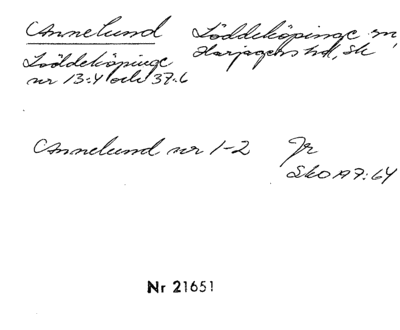 Annelund Löddeköpinge sn,
Harjagers hd, Sk
Löddeköpinge
nr 13:4 och 37:6
Annelund nr 1-2 Jr
Sko A7:64
Nr 21651